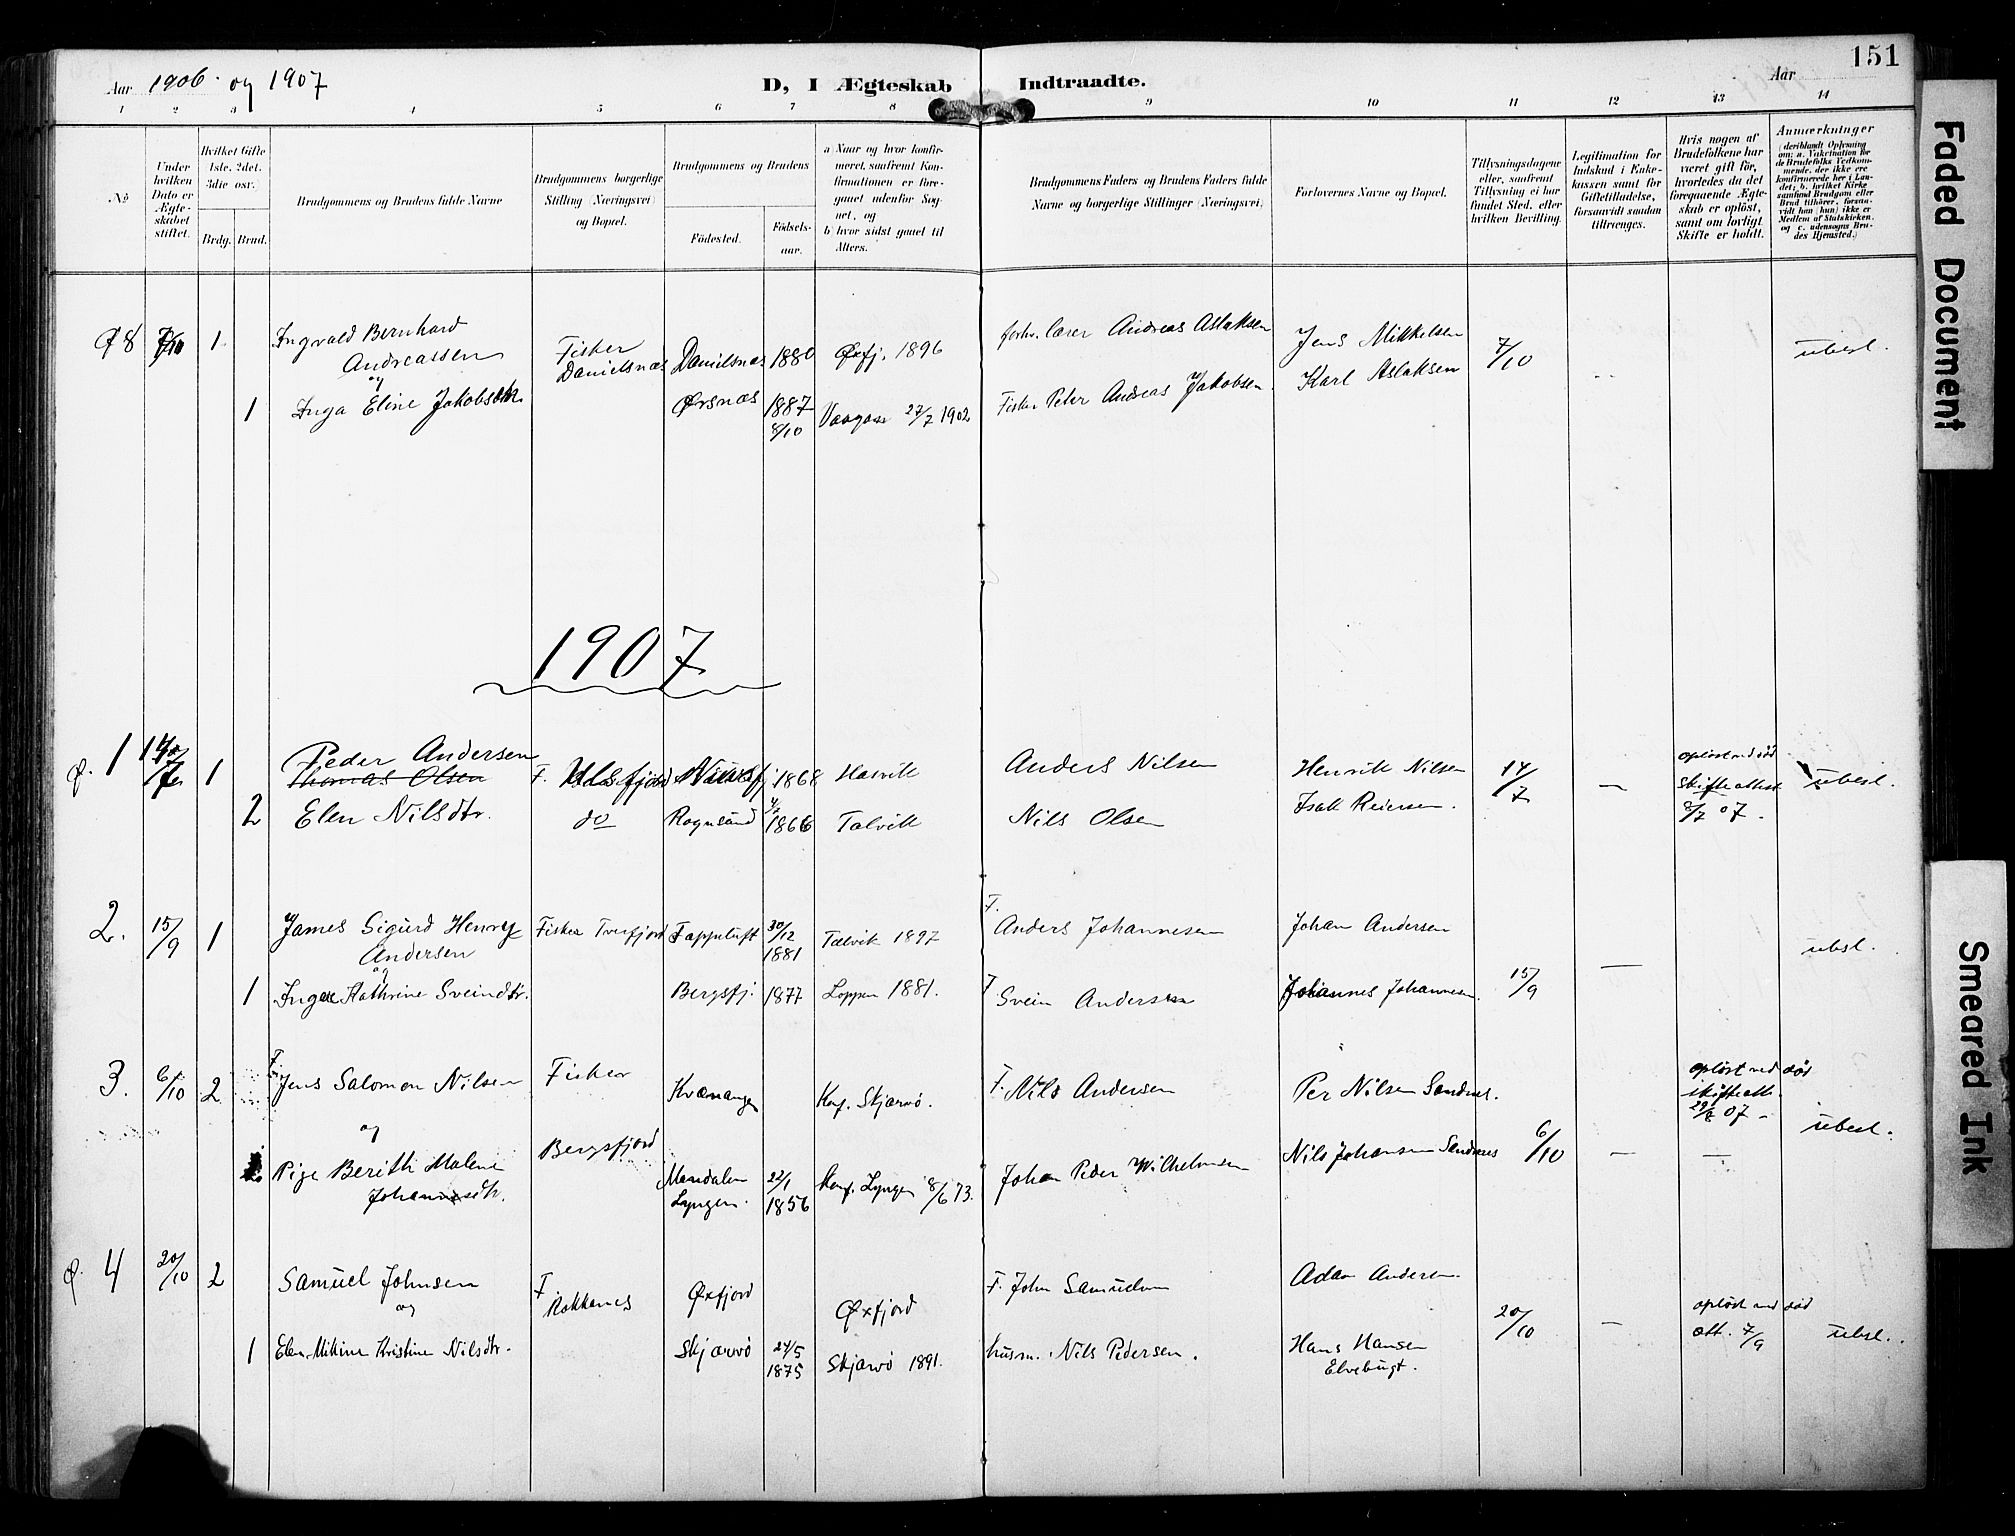 151
Aar 1906 og 1907
D, I Ægteskab Indtraadte.
Aar
1 2 3 4 5 6 7 8 9 10 11 12 13 14
No
Under hvilken Dato er Ægteskabet stiftet.
Hvilket Gifte 1ste. 2det. 3die osv.
Brdg. Brud.
Brudgommens og Brudens fulde Navne
Brudgommens borgerlige Stilling (Næringsvei) og Bopæl.
Brudgommens og Brudens
Fødested.
Fødselsaar.
a) Naar og hvor konfirmeret, samfremt Konfirmationen er foregaaet udenfor Sognet, og
b) hvor sidst gaaet til Alters.
Brudgommens Faders og Brudens Faders fulde Navne og borgerlige Stillinger (Næringsvei)
Forlovernes Navne og Bopæl.
Tillysningsdagene eller, samfremt Tillysning ei har fundet Sted, efter hvilken Bevilling.
Legitimation for Indskud i Enkekassen samt for Giftetilladelse, forsaavidt saadan tiltrænges.
Hvis nogen af Brudefolkene har været gift før, hvorledes da det foregaaende Ægteskab er opløst, samt om lovligt Skifte er holdt.
Anmærkninger
(deriblandt Oplysning om: a. Vakcination for de Brudefolks Vedkommende, der ikke ere konfirmerede her i Landet; b. hvilket Kirkesamfund Brudgom eller Brud tilhører, forsaavidt han (hun) ikke er Medlem af Statskirken, og c. udensogns Brudes Hjemsted.)
Ø 8 7/10 1 Ingvald Bernhard
Andreassen
og
Fisker
Danielsnæs
Danielsnæs 1880 Øxfj. 1896
forhv. lærer Andreas Aslaksen
Jens Mikkelsen
Karl Aslaksen
7/10
ubesl.
1 Inga Eline Jakobsdtr.
Ørsnæs 1887 8/10
Vaagan 27/7 1902
Fisker Peter Andreas Jakobsen
1907
Ø. 1 14/7 1 Peder Andersen
Thomas Olsen
F. Ulsfjord 1868 Hasvik
Anders Nilsen
Henrik Nilsen
Isak Reiersen.
14/7 —
opløst ved død
skifteattest
8/7 07.
ubesl.
2 Elen Nilsdtr.
do Rognsund 1866 Talvik
Nils Olsen
2. 15/9 1 James Sigurd Henry
Andersen
og
Fisker Tverfjord Tappeluft 30/12 1881 Talvik 1897
F. Anders Johannesen
Johan Andersen
ubesl.
1 Inga Kathrine Sveindtr.
Bergsfj. 1877 Loppen 1881.
F. Svein Andersen
Johannes Johannesen.
15/9 —
3. 6/10 2 F. Jens Salomon Nilsen
og
Fisker
Bergsfjord
Kvænangen Konf. Skjærvö.
F. Nils Andersen
Per Nilsen Sandnes.
opløst ved død
skifteatt.
07 -
ubesl.
Pige Berith Malene
Johannesdtr.
Mandalen
Lyngen. 22/1 1856
Konf. Lyngen 8/6 73.
Johan Peder Wilhelmsen
Nils Johansen Sandnes
6/10 — —
Ø. 4 20/10 2 Samuel Johnsen
og
F. Rokkenes
Øxfjord Øxfjord
F. John Samuelsen
Adam Andersen.
20/10 —
opløst ved død
att. 7/9
ubesl.
1 Elen Mikine Kristine Nilsdtr.
Skjærvö 24/5 1875 Skjærvö 1891.
husm. Nils Pedersen.
Hans Hansen
Elvebugt.
Faded Document
Smeared Ink